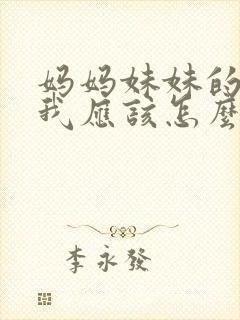 妈妈妹妹的
我应该怎麼
李永發